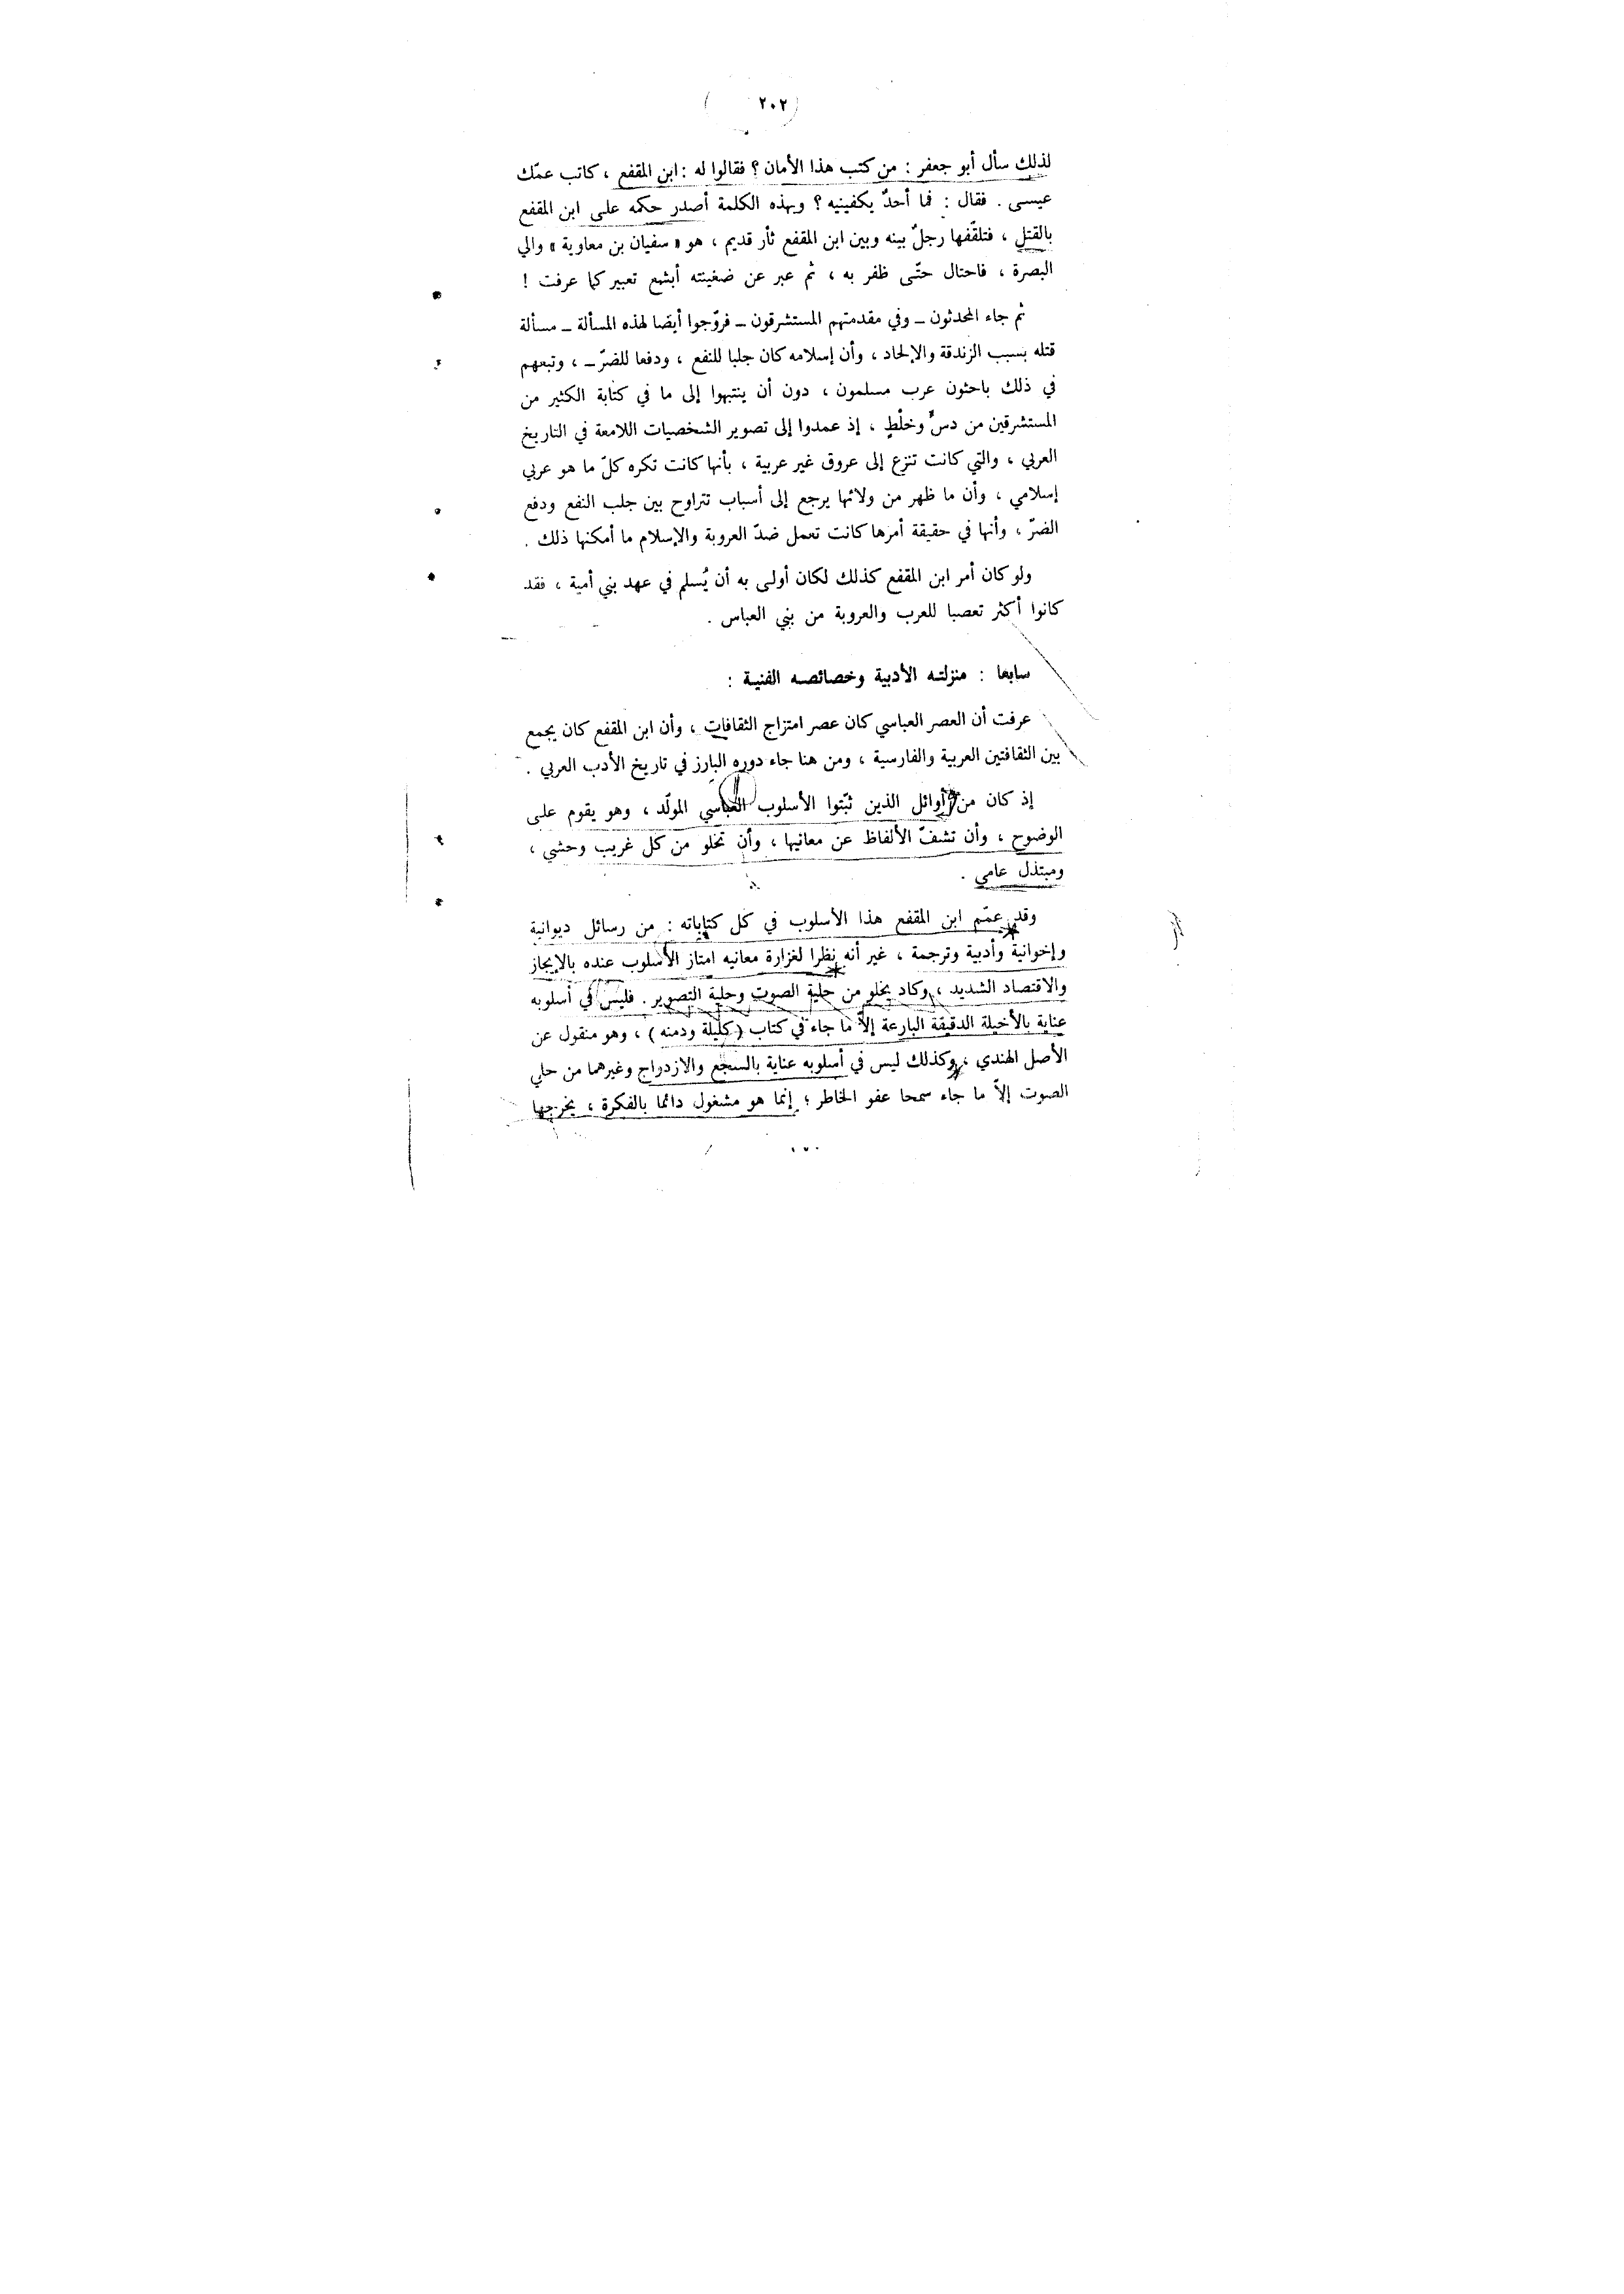 ( ٢٠٢ )
لذلك سأل أبو جعفر : من كتب هذا الأمان ؟ فقالوا له : ابن المقفع ، كاتب عمّك
عيسى . فقال : فما أحدٌ يكفينيه ؟ وبهذه الكلمة أصدر حكمه على ابن المقفع
بالقتل ، فتلقّفها رجلٌ بينه وبين ابن المقفع ثأر قديم ، هو « سفيان بن معاوية » والي
البصرة ، فاحتال حتّى ظفر به ، ثم عبر عن ضغينته أبشع تعبير كما عرفت !
ثم جاء المحدثون – وفي مقدمتهم المستشرقون – فروّجوا أيضا لهذه المسألة – مسألة
قتله بسبب الزندقة والإلحاد ، وأن إسلامه كان جلبا للنفع ، ودفعا للضرّ – ، وتبعهم
في ذلك باحثون عرب مسلمون ، دون أن ينتبهوا إلى ما في كتابة الكثير من
المستشرقين من دسٍّ وخلْطٍ ، إذ عمدوا إلى تصوير الشخصيات اللامعة في التاريخ
العربي ، والتي كانت تنزع إلى عروق غير عربية ، بأنها كانت تكره كلّ ما هو عربي
إسلامي ، وأن ما ظهر من ولائها يرجع إلى أسباب تتراوح بين جلب النفع ودفع
الضرّ ، وأنها في حقيقة أمرها كانت تعمل ضدّ العروبة والإسلام ما أمكنها ذلك .
ولو كان أمر ابن المقفع كذلك لكان أولى به أن يُسلم في عهد بني أمية ، فقد
كانوا أكثر تعصبا للعرب والعروبة من بني العباس .
سابعا : منزلته الأدبية وخصائصه الفنية :
عرفت أن العصر العباسي كان عصر امتزاج الثقافات ، وأن ابن المقفع كان يجمع
بين الثقافتين العربية والفارسية ، ومن هنا جاء دوره البارز في تاريخ الأدب العربي .
إذ كان من أوائل الذين ثبّتوا الأسلوب العباسي المولّد ، وهو يقوم على
الوضوح ، وأن تشفّ الألفاظ عن معانيها ، وأن تخلو من كل غريب وحشي ،
ومبتذل عامي .
وقد عمّم ابن المقفع هذا الأسلوب في كل كتاباته : من رسائل ديوانية
وإخوانية وأدبية وترجمة ، غير أنه نظرا لغزارة معانيه امتاز الأسلوب عنده بالإيجاز
والاقتصاد الشديد ، وكاد يخلو من حلية الصوت وحلية التصوير . فليس في أسلوبه
عناية بالأخيلة الدقيقة البارعة إلاّ ما جاء في كتاب ( كليلة ودمنه ) ، وهو منقول عن
الأصل الهندي ، وكذلك ليس في أسلوبه عناية بالسجع والازدواج وغيرهما من حلي
الصوت إلاّ ما جاء سمحا عفو الخاطر ؛ إنما هو مشغول دائما بالفكرة ، يخرجها